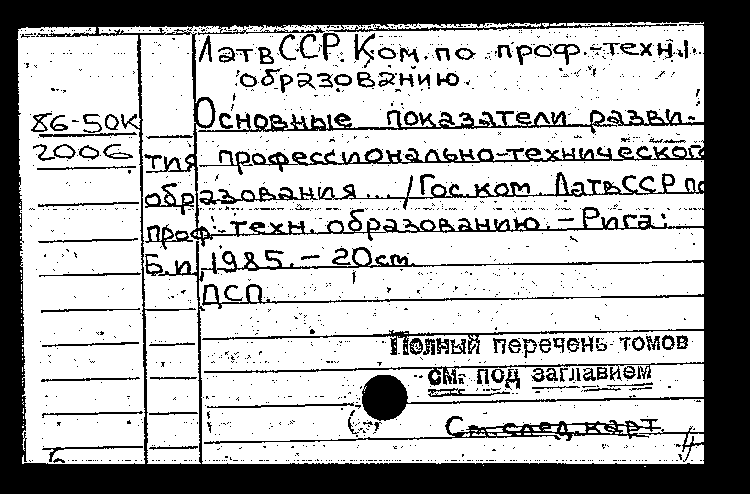 ЛатвССР. Ком. по проф.-техн.
образованию.
86-50К Основные показатели разви-
2006 тия профессионально-техническог
образования... /Гос. ком. ЛатвССР по
проф.-техн. образованию. - Рига:
Б.и., 1985. - 20 см.
ДСП.
Полный перечень томов
см. под заглавием
См. след. карт.